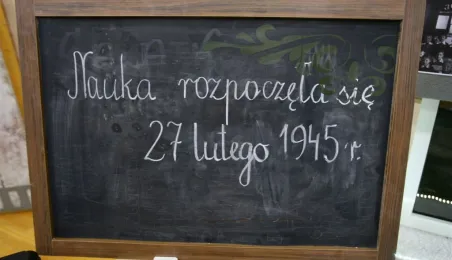 Nauka rozpoczęła się
27 lutego 1945 r.